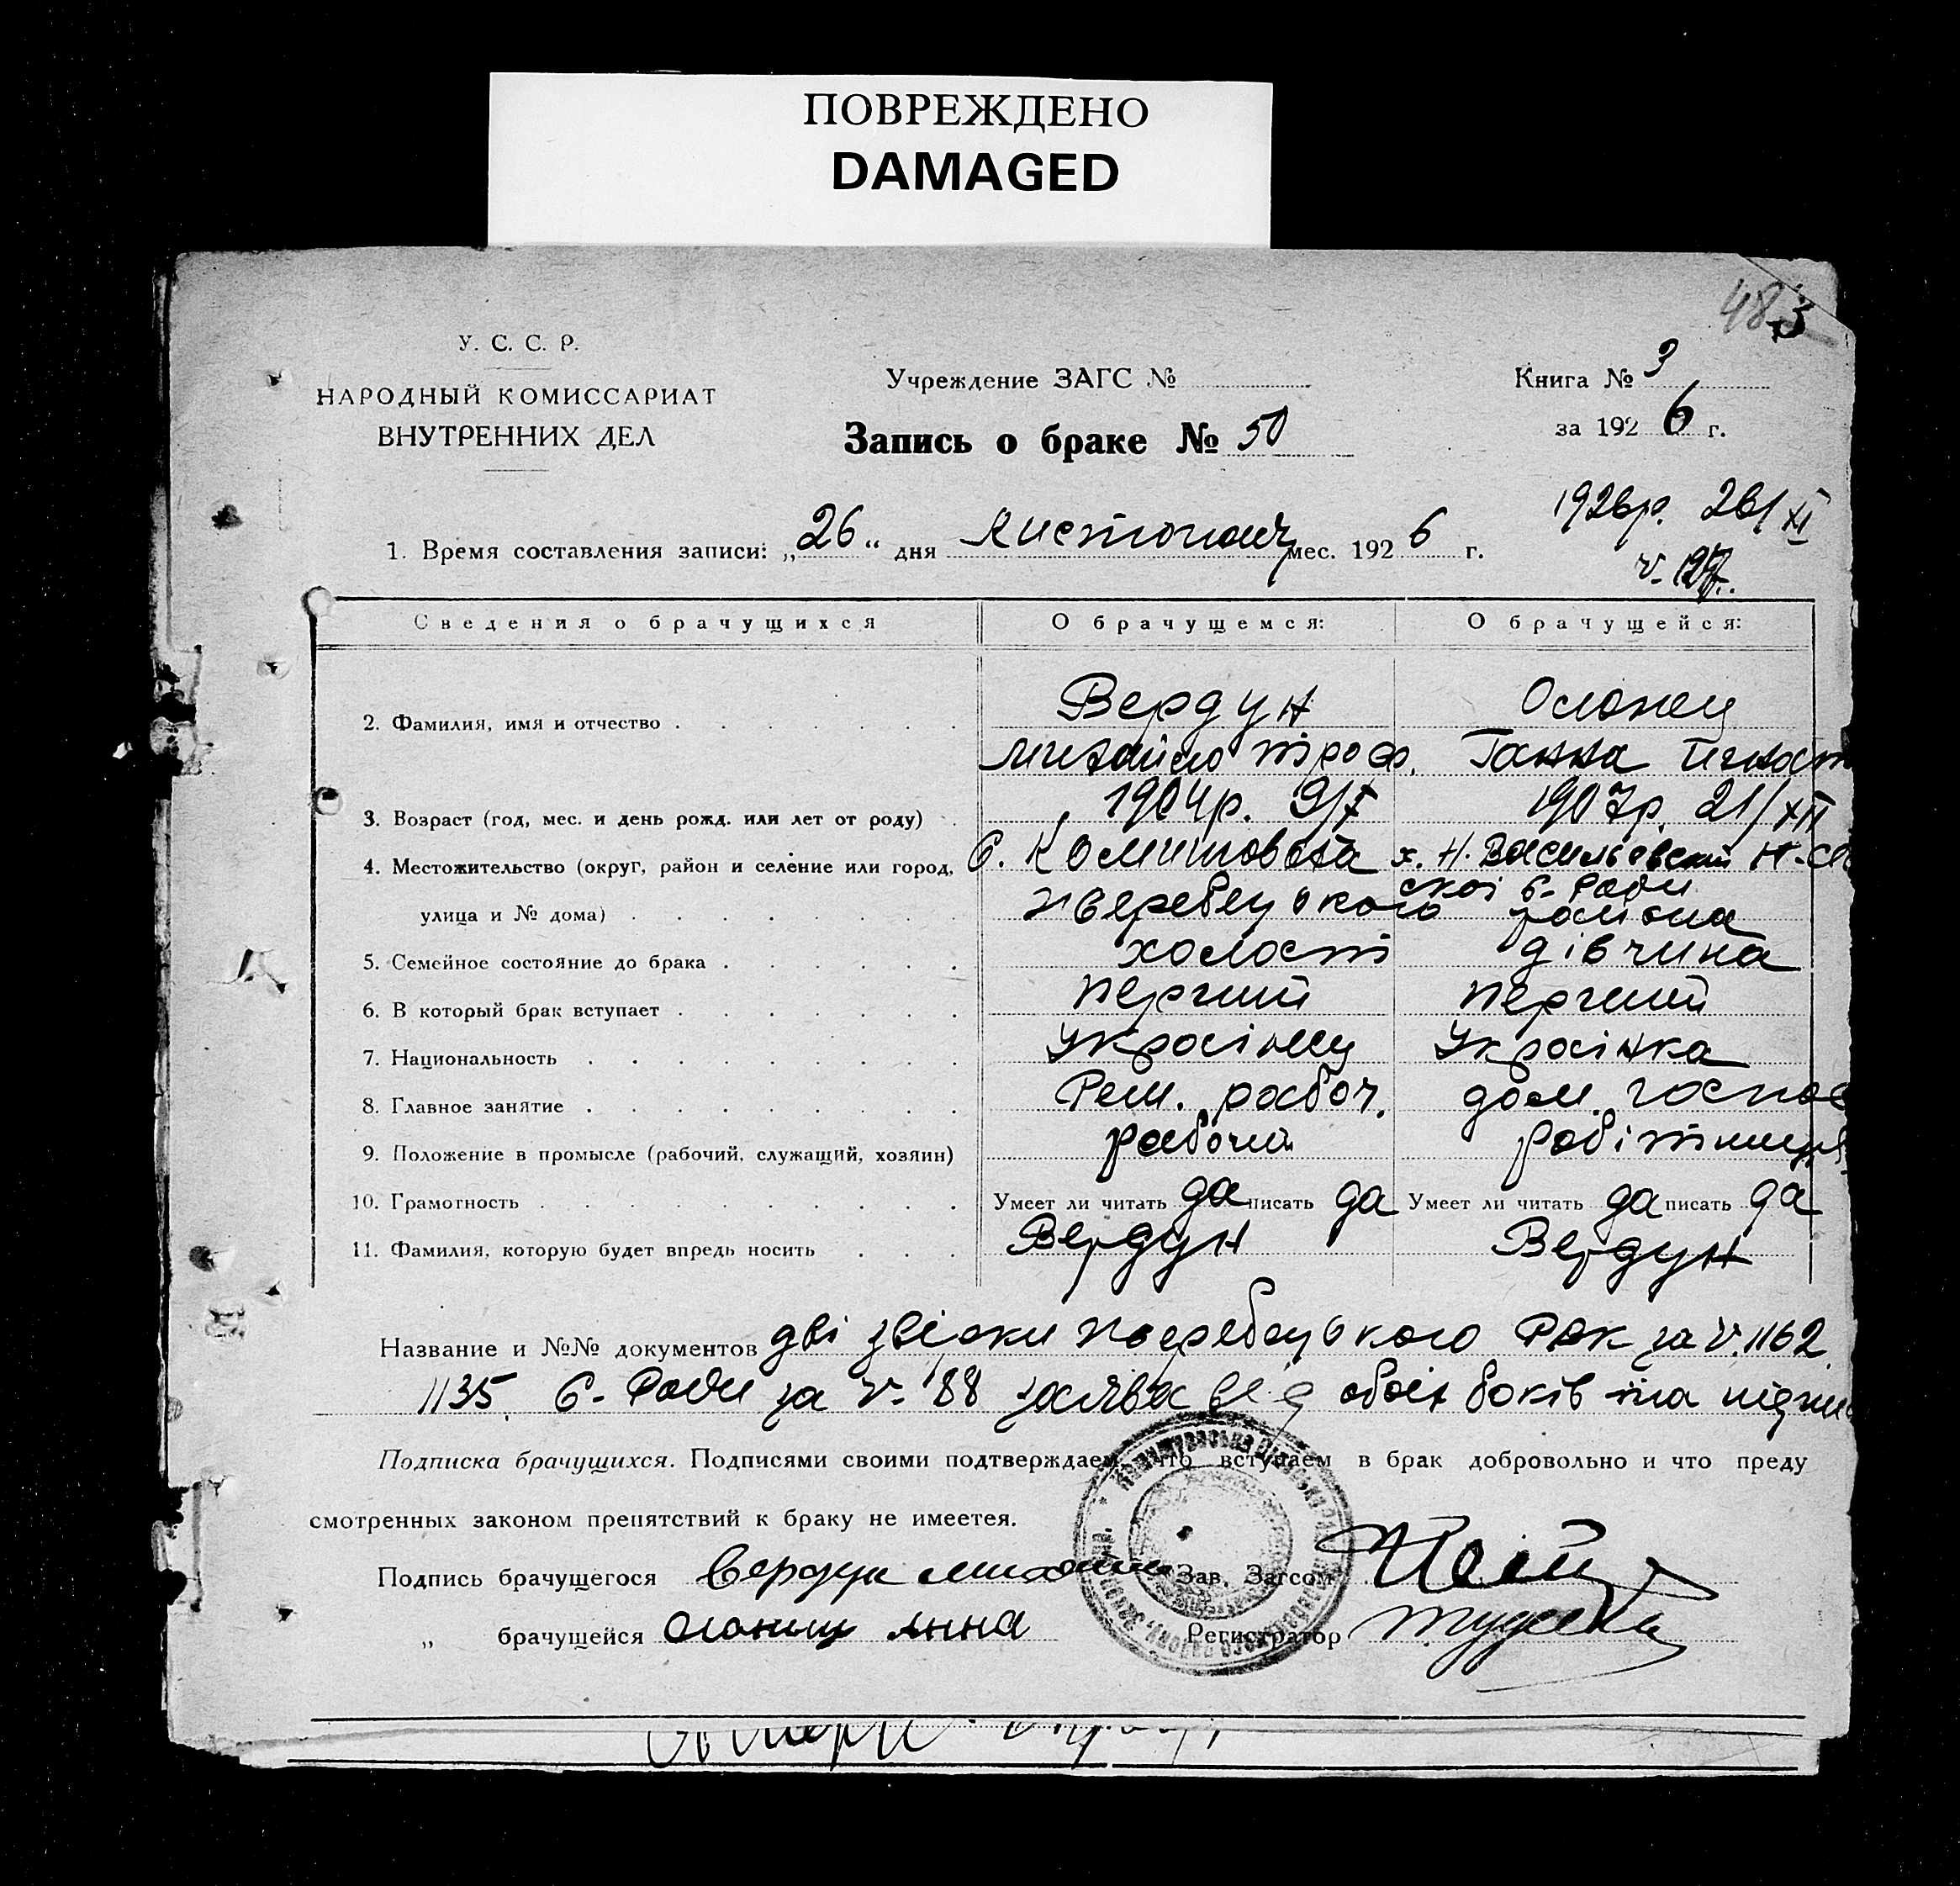 ПОВРЕЖДЕНО
DAMAGED
483
У. С. С. Р.
НАРОДНЫЙ КОМИССАРИАТ
ВНУТРЕННИХ ДЕЛ
Учреждение ЗАГС №
Запись о браке № 50
Книга № 3
за 1926 г.
1926р. 26/XI
ч. 127.
1. Время составления записи: „26“ дня Листопаду мес. 1926 г.
Сведения о брачущихся О брачущемся: О брачущейся:
2. Фамилия, имя и отчество Вердун Олонец
Михайло Троф. Ганна Игнат
3. Возраст (год, мес. и день рожд. или лет от роду) 1904р. 9/X 1907р. 21/XII
4. Местожительство (округ, район и селение или город, С. Комишовата х. Н. Васильевский Н-
ської С-Ради
улица и № дома) района
5. Семейное состояние до брака холост дівчина
6. В который брак вступает перший перший
7. Национальность Українец Українка
8. Главное занятие Рем. рабоч. дом. господ
9. Положение в промысле (рабочий, служащий, хозяин) рабочий робітниця
10. Грамотность Умеет ли читать да писать да Умеет ли читать да писать да
11. Фамилия, которую будет впредь носить Вердун Вердун
Название и №№ документов дві РВК за ч. 1162
1135. С-Ради за ч. 88 заява від обоіх боків та підпис
Подписка брачущихся. Подписями своими подтверждаем, что вступаем в брак добровольно и что преду
смотренных законом препятствий к браку не имеется.
Подпись брачущегося Вердун Михайло Зав. Загсом
„ брачущейся Олонец Анна Регистратор